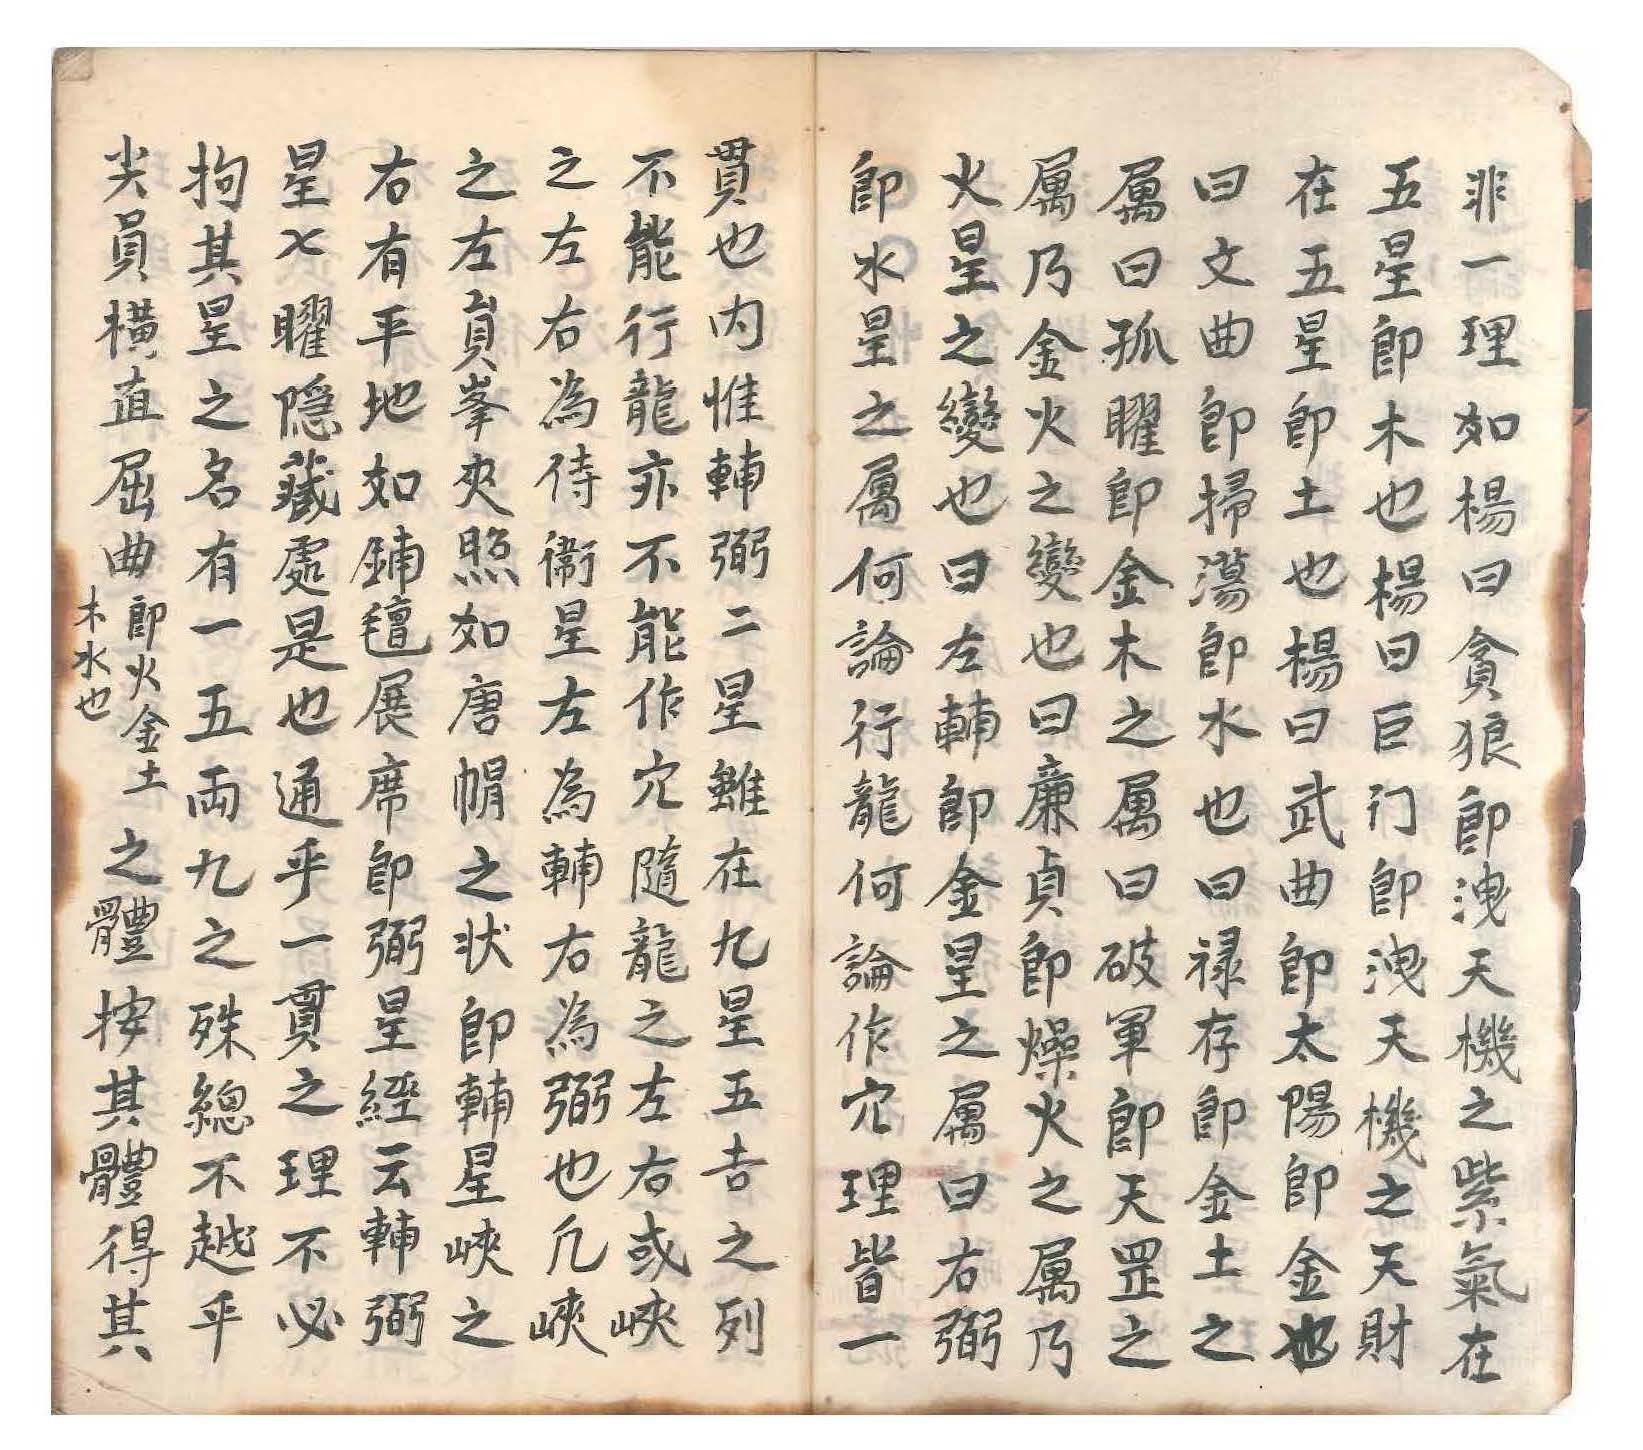 非一理如楊曰貪狼即洩天機之紫氣在
五星即木也楊曰巨门即洩天機之天財
在五星即土也楊曰武曲即太陽即金也
曰文曲即掃蕩即水也曰禄存即金土之
属曰孤曜即金木之属曰破軍即天罡之
属乃金火之變也曰廉貞即燥火之属乃
火星之變也曰左輔即金星之属曰右弼
即水星之属何論行龍何論作穴理皆一
貫也内惟輔弼二星雖在九星五吉之列
不能行龍亦不能作穴隨龍之左右或峽
之左右為侍衛星左為輔右為弼也凢峽
之左員峯夾照如唐帽之状即輔星峽之
右有平地如鋪氊展席即弼星經云輔弼
星七曜隠藏處是也通乎一貫之理不必
拘其星之名有一五両九之殊總不越乎
尖員橫直屈曲即火金土木水也之體按其體得其